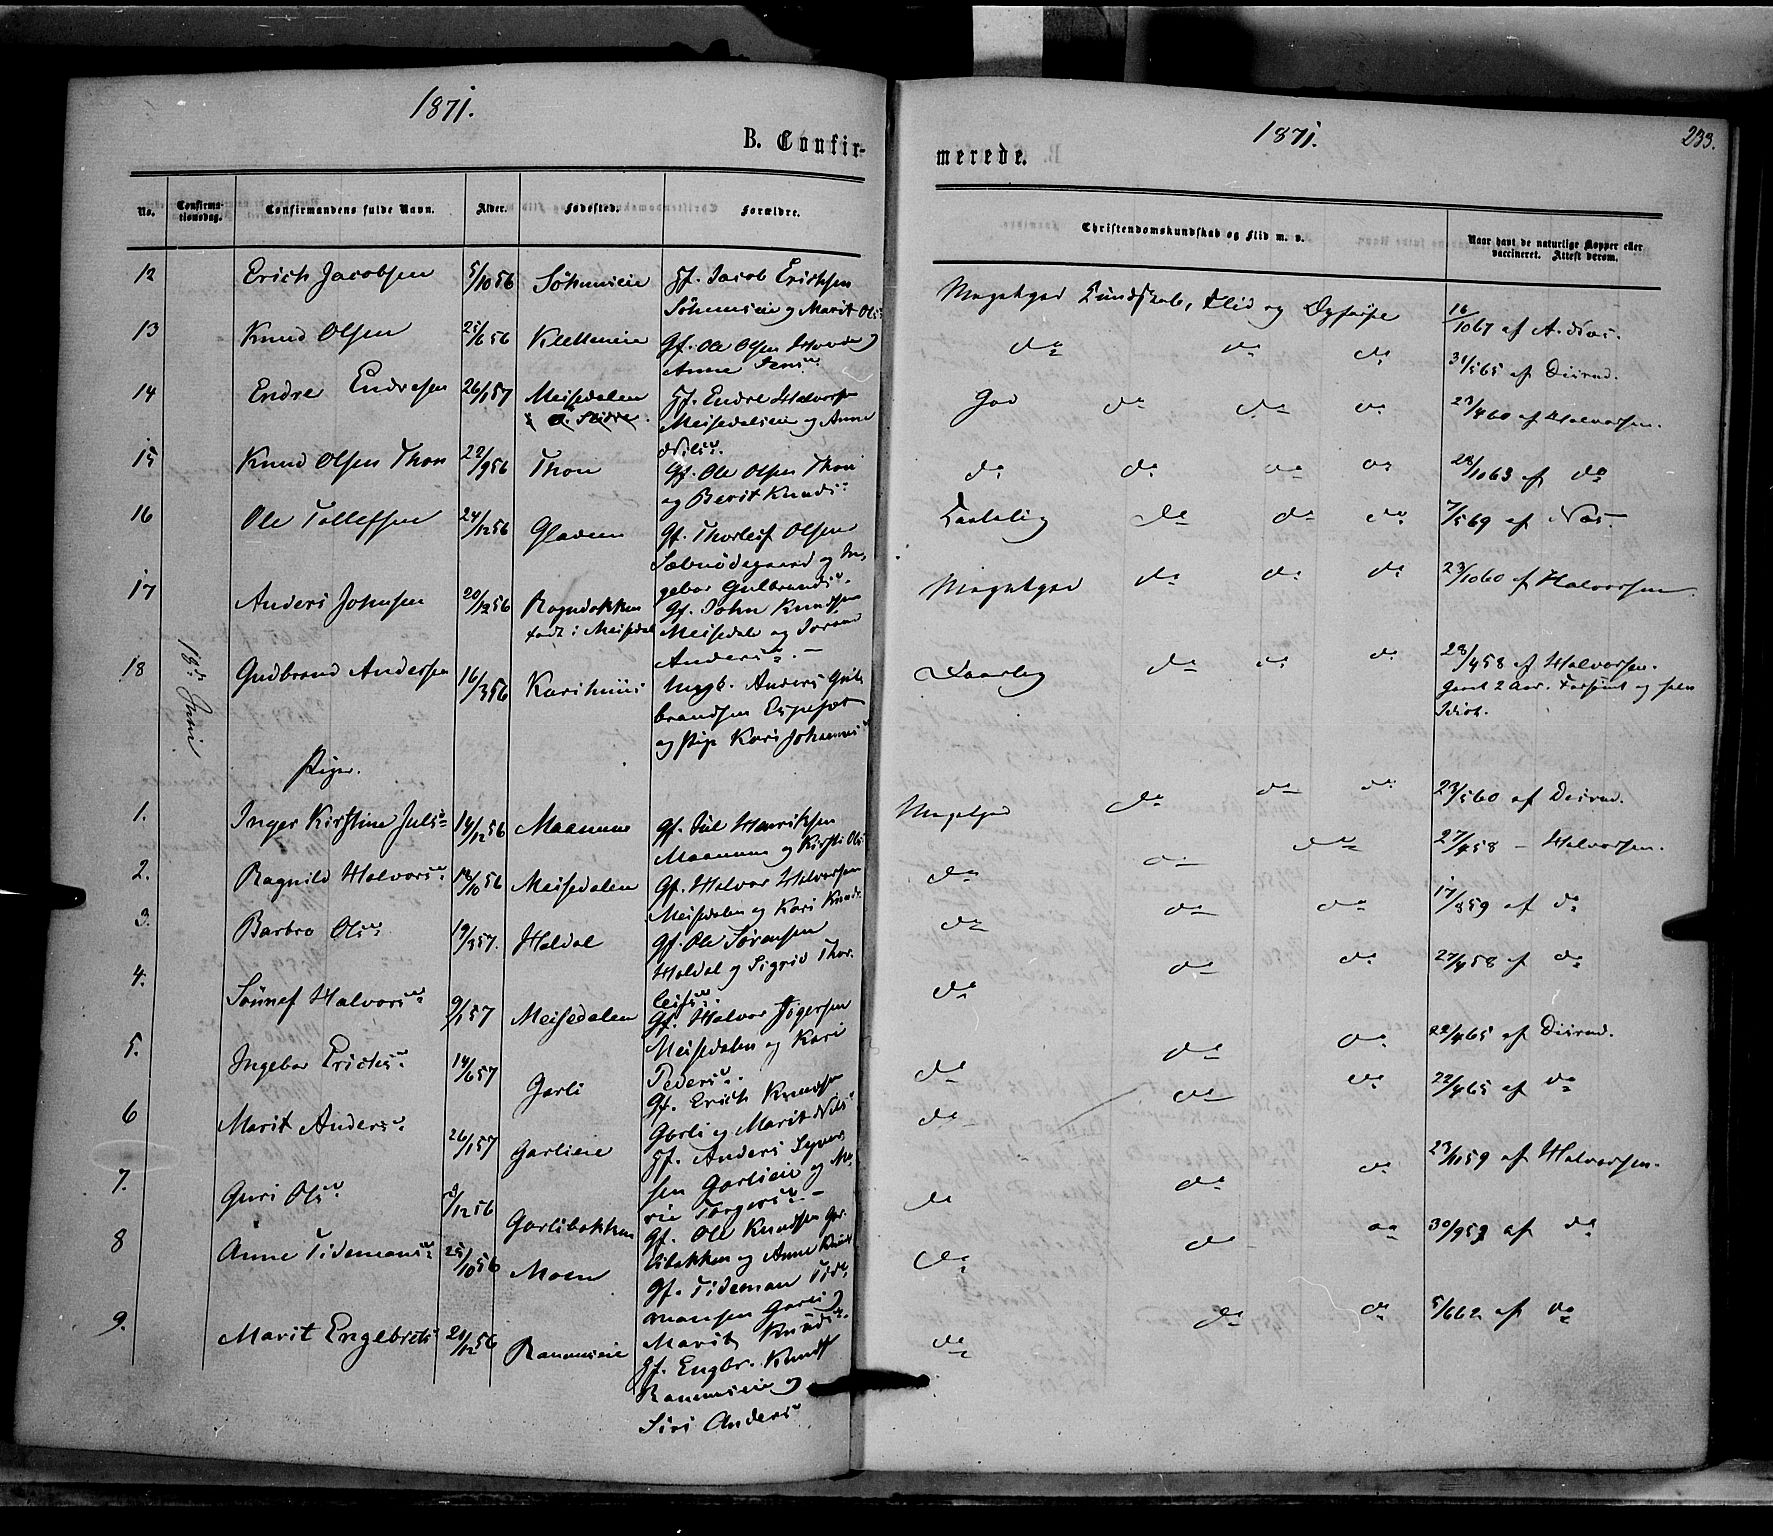 1871.
B. Confir-
No.
Confirma-
tionsdag.
Confirmandens fulde Navn.
Alder.
Fødested.
Forældre.
18de Juni
12 Erich Jacobsen 5/10 56 Gf. Jacob Erichsen
og Marit Ols
13 Knud Olsen 25/6 56 Gf. Ole Olsen
Anne
14 Endre Endresen 26/1 57 Meisedalen Gf. Endre Halvors
Meisedalen og Anne
Nilsd.
15 Knud Olsen Thon 22/9 56 Thon Gf. Ole Olsen Thon
og Berit Knuds
16 Ole Tollefsen 24/12 56 Gf. Thorleif Olsen
Sæbuødegaard og In-
gebor Gulbrandsd.
17 Anders Johnsen 20/12 56 Rogndokken Gf. John Knudsen
født i Meisedal Meisedal og
Andersd. -
18 Gudbrand Andersen 16/3 56 Ungk. Anders Gul-
brandsen Espeset
og Pige Kari Johannesd.
Piger.
1. Inger Kirstine Julsd. 14/12 56 Maanum Gf. Jul Henriksen
Maanum og Kirsti Ols
2. Ragnild Halvorsd. 18/10 56 Meisedalen Gf. Halvor Halvorsen
Meisedalen og Kari Knuds
3. Barbro Olsd. 19/3 57. Haldal Gf. Ole Sørensen
Haldal og Sigrid Thor-
leifsd.
4. Sønnef Halvorsd. 9/1 57 Meisedalen Gf. Halvor
Meisedalen og Kari
Pedersd.
5. Ingebor Erichsd. 14/6 57 Garli Gf. Erich Knudsen
Garli og Marit Nils
6 Marit Andersd. 26/1 57 Garlieie Gf. Anders Syver-
sen Garlieie og Ma-
rie Torgersd. -
7. Guri Olsd. 8/12 56 Garlibakken Gf. Ole Knudsen Gar-
libakken og Anne Knuds
8 Anne Tidemansd. 25/10 56 Moen Gf. Tideman Tide-
mansen Garli og
Marit Knudsd.
9. Marit Engebrets 21/12 56 Ranumseie Gf. Engbr. Knuds
Ranumseie og
Siri Andersd.
1871.
233.
merede.
Christendomskundskab og Flid m. v.
Naar havt de naturlige Kopper eller
vaccineret. Attest derom.
Megetgod Kundskab, Flid og Opførsel 16/10 67 af A. Næs.
do do do 31/5 65 af Diirud.
God do do do 23/4 60 af Halvorsen.
do do do do 28/10 63 af do
Taalelig do do do 7/5 69 af Næs -
Megetgod do do do 23/10 60 af Halvorsen.
Daarlig do do do 28/4 58 af Halvorsen.
Gaaet 2 Aar. Forsømt og halv
Idiot.
Megetgod do do do 23/5 60 af Diirud.
do do do 27/4 58 - Halvorsen.
do do do 17/3 59 af do
do do do 27/4 58 af do
do do do 22/4 65 af Diirud.
do do do 22/4 65 af do
do do do 23/11 59 af Halvorsen.
do do do 30/9 59 af do
do do do 5/6 62 af do